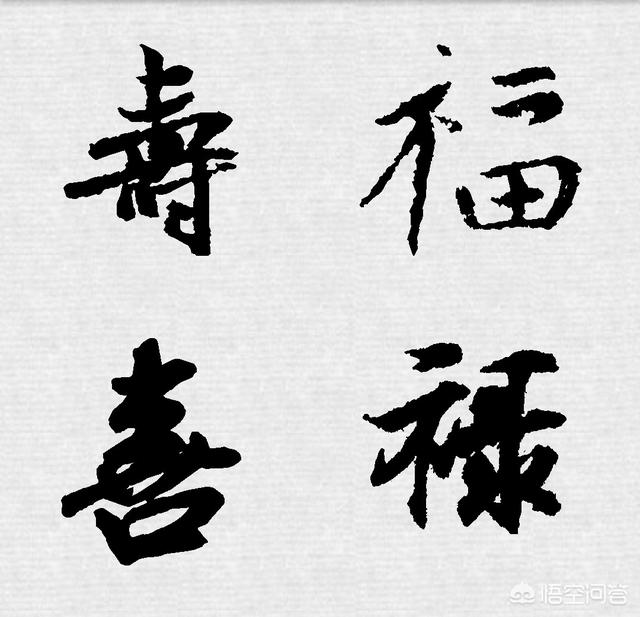 福
禄
壽
喜
悟空问答